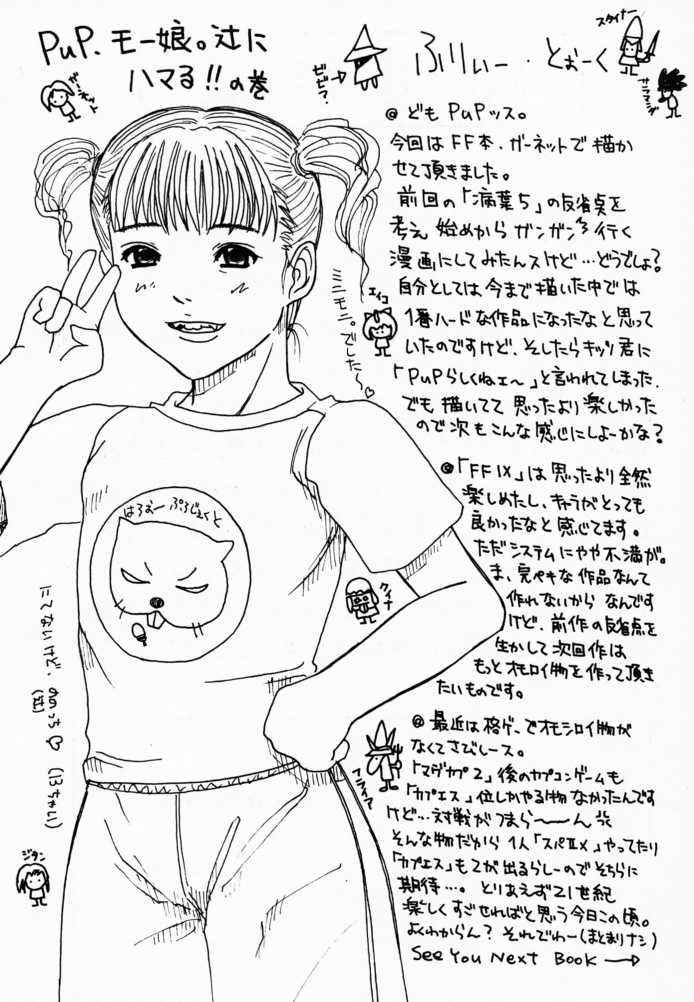 PuP.モー娘。辻に
ハマる!!の巻
ガーネット
ビビ?
ふりぃー・とぉーく
スタイナー
サラマンダ
@ どもPuPッス。
今回はFF本.ガーネットで描か
せて頂きました。
前回の「病葉5」の反省点を
考え始めからガンガン行く
漫画にしてみたんスけど…どうでしょ?
自分としては今まで描いた中では
エイコ
1番ハードな作品になったなと思って
いたのですけど、そしたらキッソ君に
「PuPらしくねェ〜」と言われてしまった.
でも描いてて思ったより楽しかった
ので次もこんな感じにしよーかな?
ミニモニ。でした〜♡
@「FFIX」は思ったより全然
楽しめたし、キャラがとっても
良かったなと感じてます。
ただシステムにやや不満が。
ま、完ペキな作品なんて
作れないからなんです
けど、前作の反省点を
生かして次回作は
もっとオモロイ物を作って頂き
たいものです。
クイナ
はろおーぷろじぇくと
にてないけど.ののっち♡(13ちゃい)
(辻)
@ 最近は格ゲーでオモシロイ物が
なくてさびしース。
「マヴカプ2」後のカプコンゲームも
「カプエス」位しかやる物なかったんです
けど…対戦がつまら〜〜ん
そんな物だから1人「スパⅡX」やってたり
「カプエス」も2が出るらしーのでそちらに
期待…。とりあえず21世紀
楽しくすごせればと思う今日この頃。
よくわからん?それでわー(まとまりナシ)
See You Next Book →
フライア
ジタン